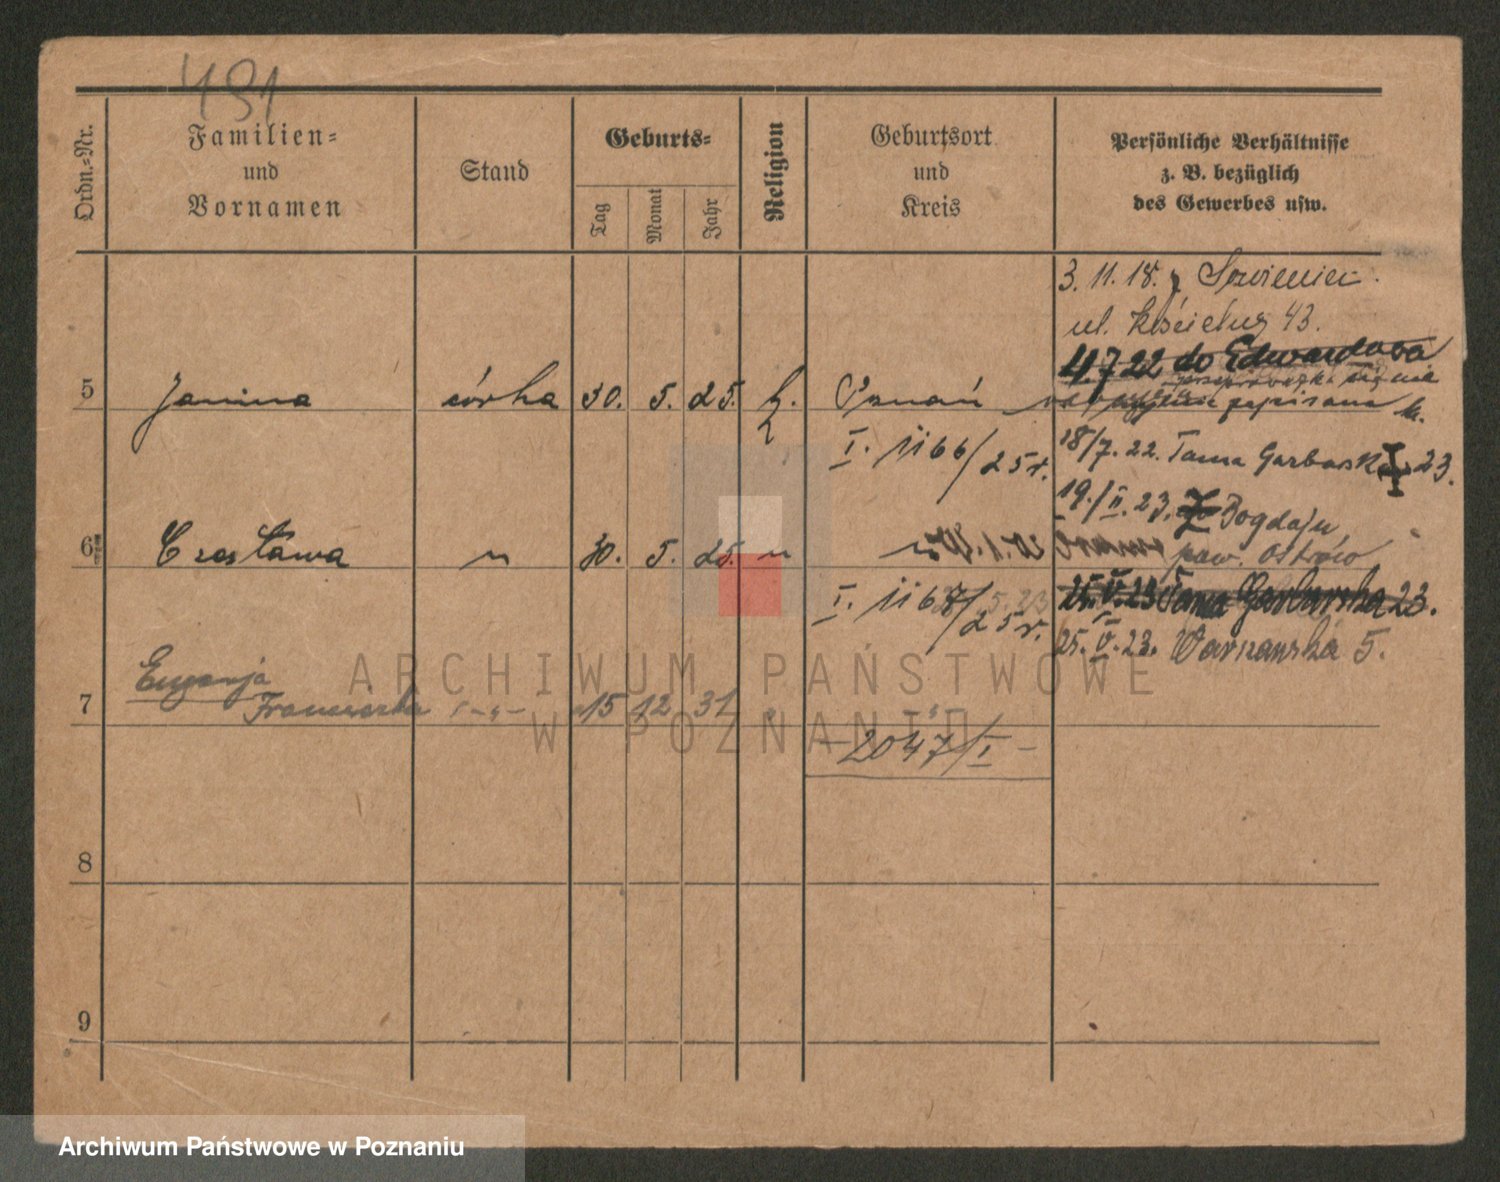 491
Ordn.=Nr.
Familien=
und
Vornamen
Stand
Geburts=
Tag
Monat
Jahr
Religion
Geburtsort
und
Kreis
Persönliche Verhältnisse
z. B. bezüglich
des Gewerbes usw.
3. 11. 18. z
ul. 43.
4 7 22 do Edwardowa
zapisana
5 Janina córka 30. 5. 25. k. Poznań
I. 1166/25 r.
18/7. 22. Tama Garbarsk 23.
19./II. 23. Bogdaju
6 Czesława " 30. 5. 25. " "
pow. Ostrów
I. 1167/25 r.
25. V. 23 Tama Garbarska 23.
25. V. 23. Warszawska 5.
7 Eugenja
Franciszka -"- 15 12 31 " -"-
- 2047/I -
8
9
ARCHIWUM PAŃSTWOWE
W POZNANIU
Archiwum Państwowe w Poznaniu